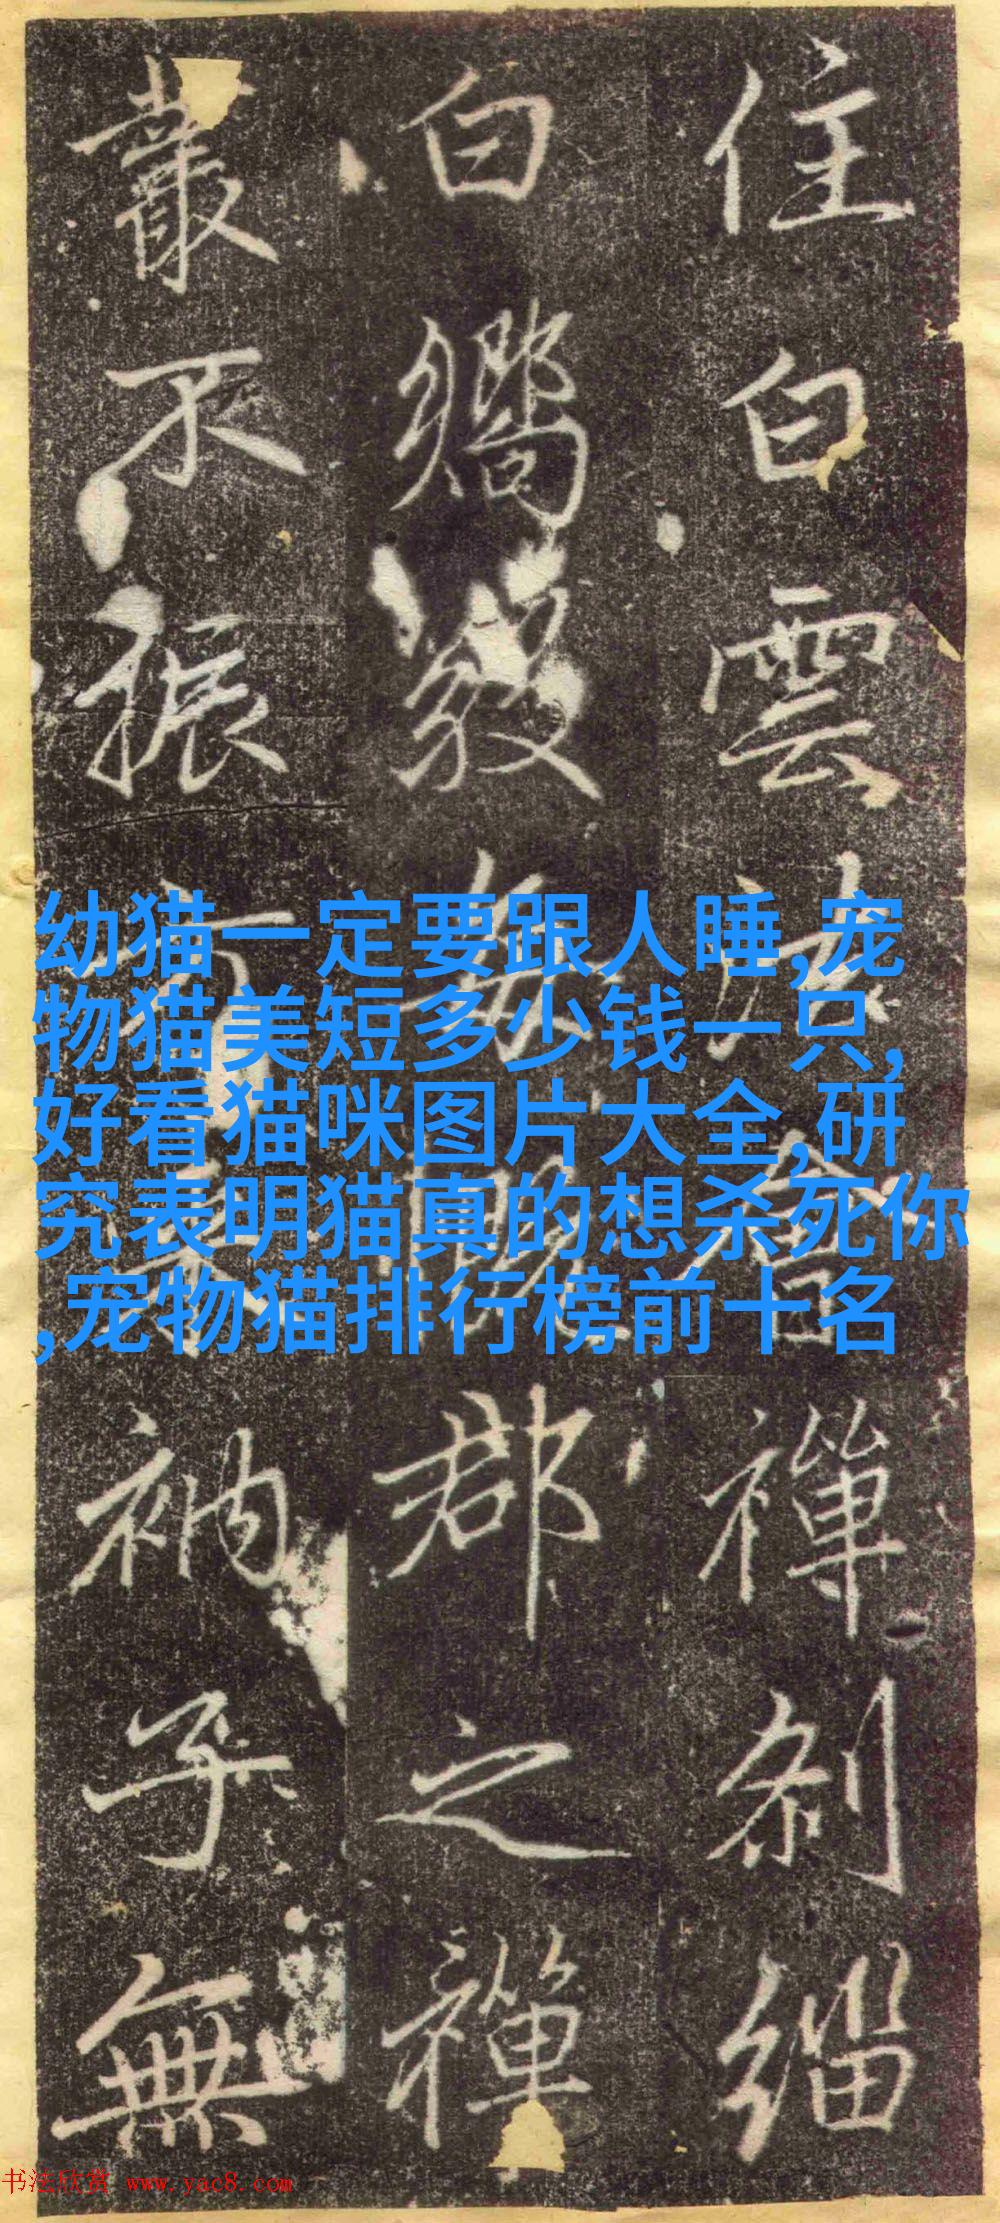 住白雲
禅剎緇
白
郡之禅
叢不振
衲子無
幼猫一定要跟人睡,宠
物猫美短多少钱一只,
好看猫咪图片大全,研
究表明猫真的想杀死你
,宠物猫排行榜前十名
书法欣赏 www.yac8.com